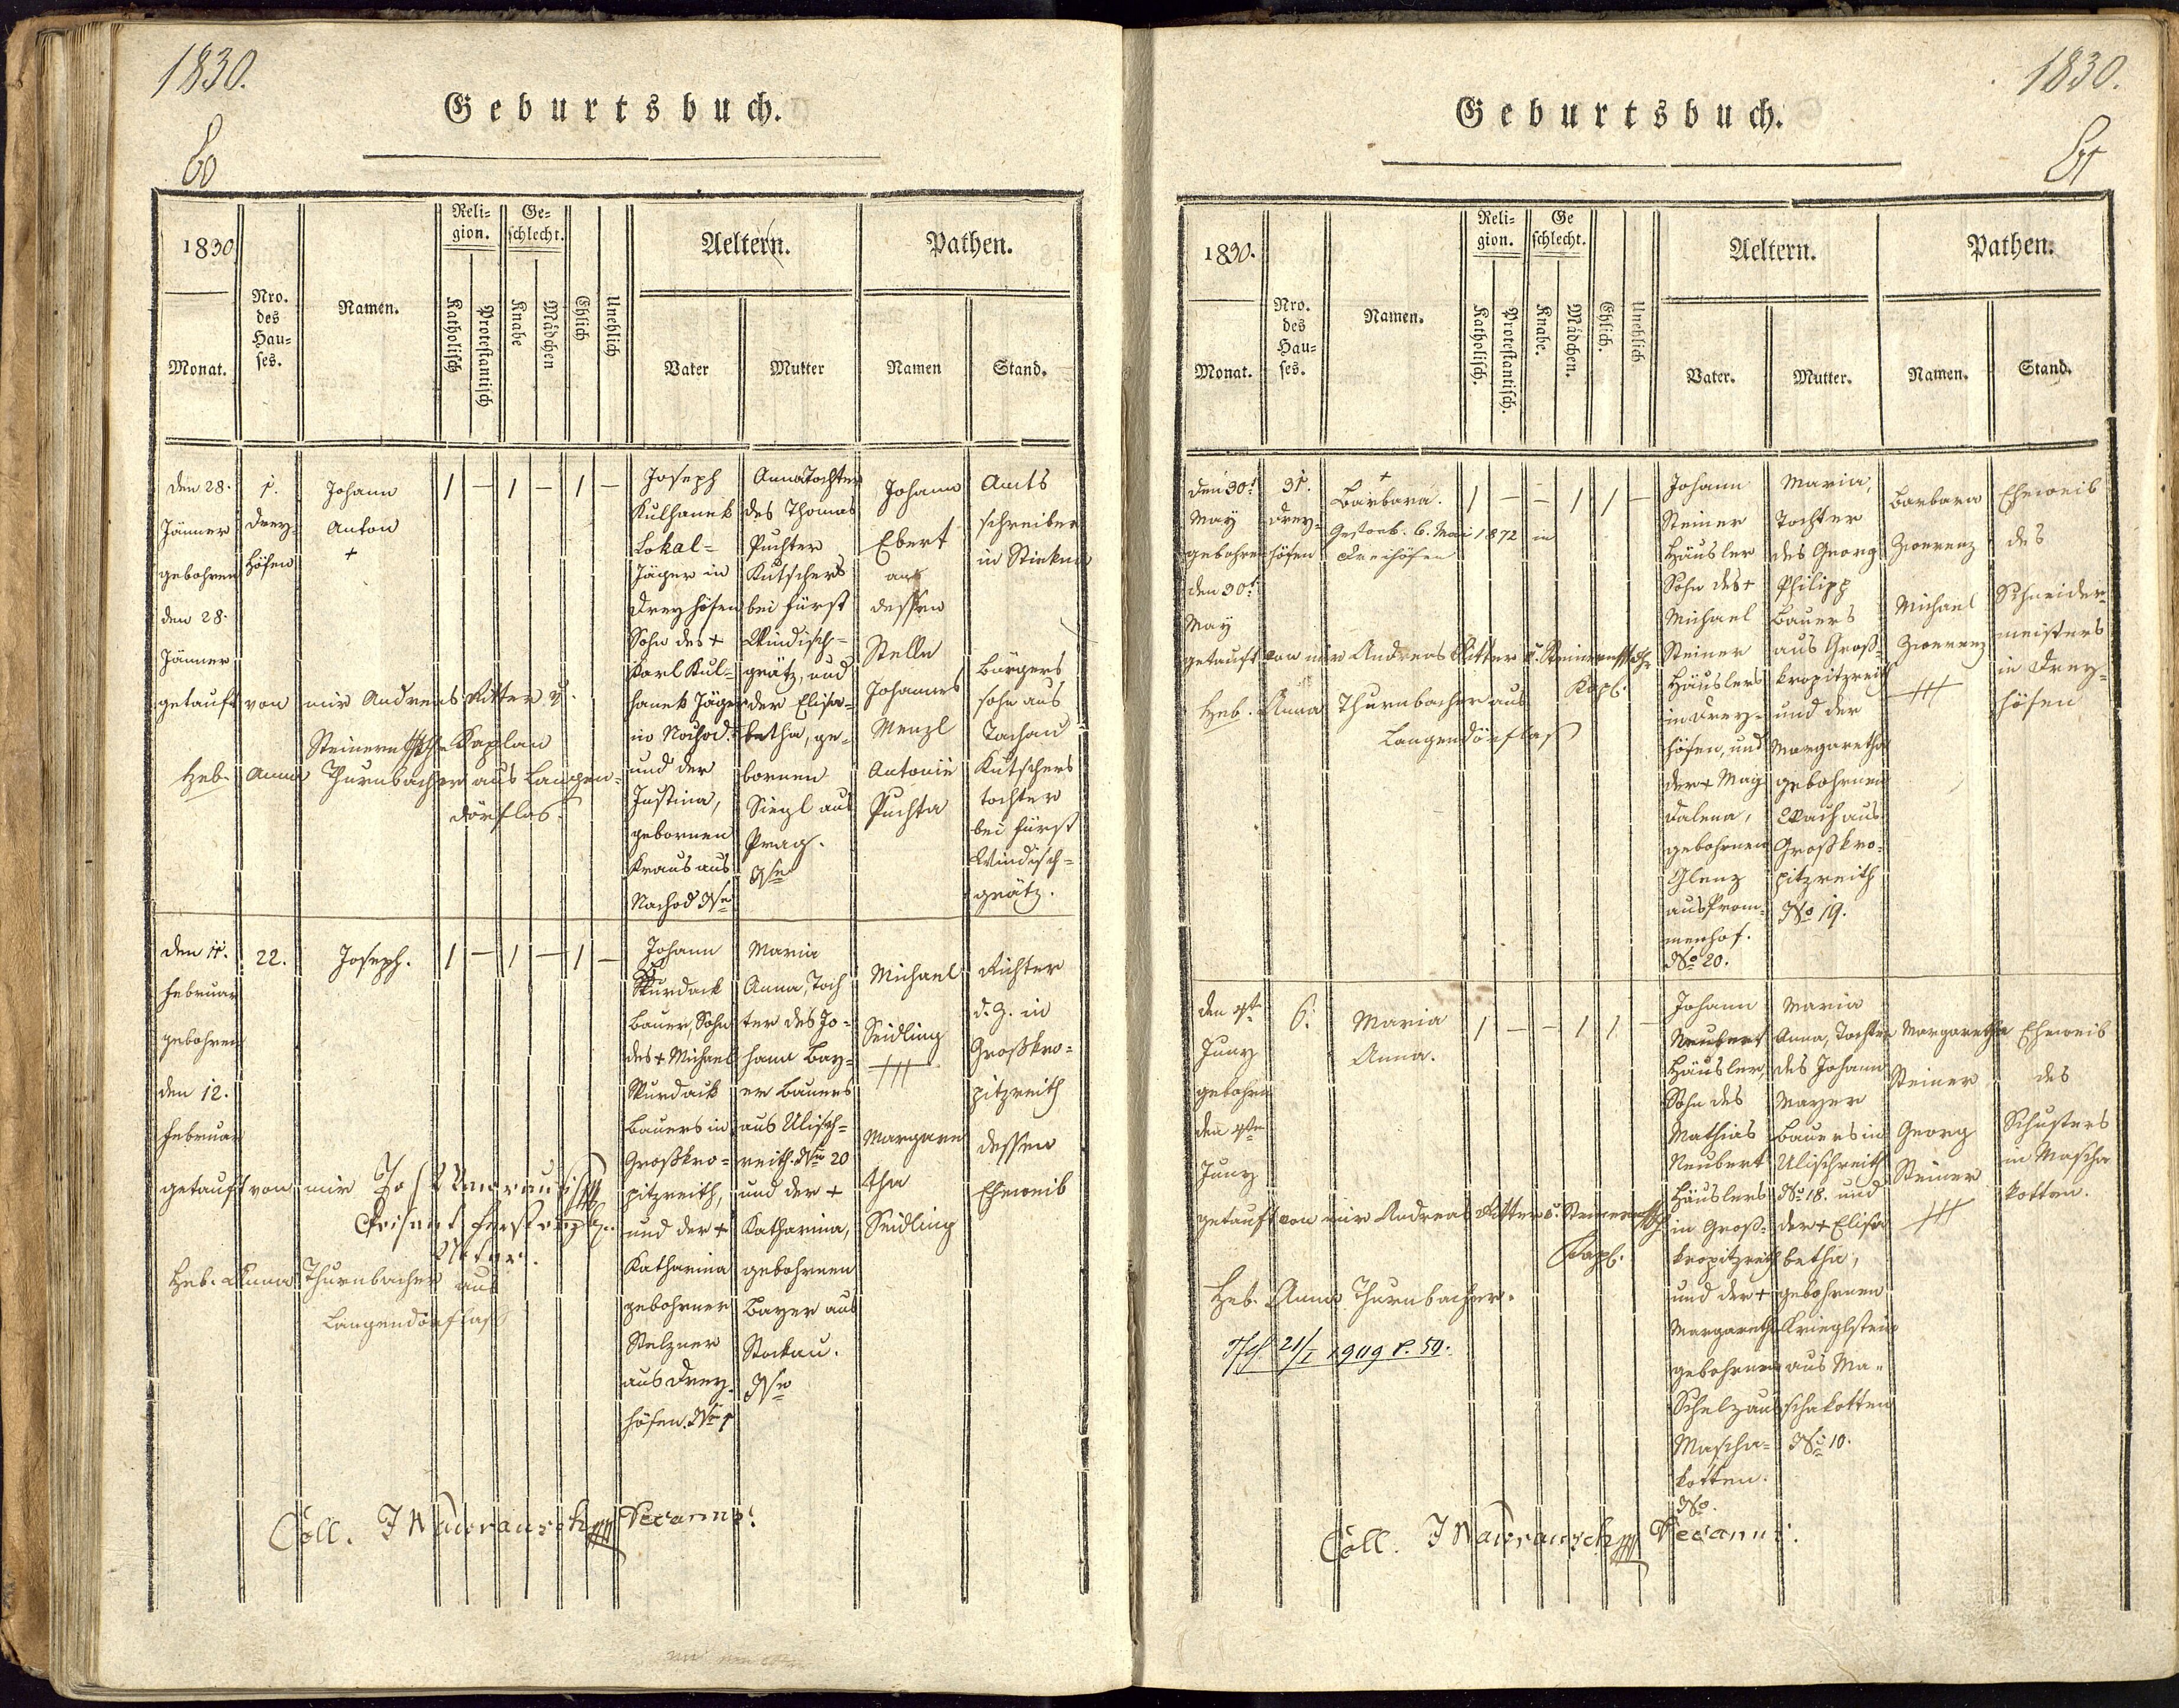 1830.
60
Geburtsbuch.
1830
Monat.
Nro.
des
Hau-
ses.
Namen.
Reli-
gion.
Katholisch
Protestantisch
Ge-
schlecht.
Knabe
Mädchen
Ehlich
Unehlich
Aeltern.
Vater
Mutter
Pathen.
Namen
Stand.
den 28.
Jänner
gebohren
den 28.
Jänner
getauft von mir Andreas Ritter
Kaplan
Heb. Anna Thurnbacher aus Langen-
dörflas.
1.
Drey-
höfen
Johann
Anton
+
1 — 1 — 1 —
Joseph
Kulhanek
Lokal-
Jäger in
Dreyhöfen
Sohn des +
Karl Kul-
hanek Jäger
in Nachod
und der
Justina,
gebornen
Kraus aus
Nachod Nro
Anna Tochter
des Thomas
Puchter
Kutschers
bei Fürst
Windisch-
grätz, und
der Elisa-
betha, ge-
bornen
Siegl aus
Prag.
Nro
Johann
Ebert
aus
dessen
Stelle
Johannes
Menzl
Antonie
Puchta
Amts
schreiber
in
Bürgers
sohn aus
Tachau
Kutschers
tochter
bei Fürst
Windisch-
grätz.
den 11.
Februar
gebohren
den 12.
Februar
getauft von mir
Heb. Anna Thurnbacher aus
Langendörflaß
22.
Joseph.
1 — 1 — 1 —
Johann
Skurdack
Bauer, Sohn
des + Michael
Skurdack
Bauers in
Großkro-
pitzreith,
und der +
Katharina
gebohrner
Stelzner
aus Drey-
höfen. Nro 1
Maria
Anna, Toch
ter des Jo-
hann Bay-
er Bauers
aus Ulisch-
reith. Nro 20
und der +
Katharina,
gebohrnen
Bayer aus
Stockau.
Nro
Michael
Seidling
+++
Margare
tha
Seidling
Richter
d. Z. in
Großkro-
pitzreith
dessen
Eheweib
Coll. J Wawrausch Decanus.
1830.
61
Geburtsbuch.
1830.
Monat.
Nro.
des
Hau-
ses.
Namen.
Reli-
gion.
Katholisch.
Protestantisch.
Ge
schlecht.
Knabe.
Mädchen.
Ehlich.
Unehlich
Aeltern.
Vater.
Mutter.
Pathen.
Namen.
Stand.
den 30t
May
gebohren
den 30t
May
getauft von mir Andreas Ritter
Kapl.
Heb. Anna Thurnbacher aus
Langendörflaß
31.
Drey-
höfen
+
Barbara.
Gestorb. 6. Mai 1872 in
Dreihöfen
1 — — 1 1 —
Johann
Steiner
Häusler
Sohn des +
Michael
Steiner
Häuslers
in Drey-
höfen, und
der + Mag
dalena,
gebohrnen
Glenz
aus Prom-
menhof.
No 20.
Maria,
Tochter
des Georg
Philipp
Bauers
aus Groß-
kropitzreith
und der
Margaretha
gebohrnen
Wach aus
Großkro-
pitzreith
No 19.
Barbara
Zwerenz
Michael
Zwerenz
+++
Eheweib
des
Schneider-
meisters
in Drey-
höfen
den 9te
Juny
gebohren
den 9te
Juny
getauft von mir Andreas Ritter
Kapl.
Heb. Anna Thurnbacher.
21/I 1909
6.
Maria
Anna.
1 — — 1 1 —
Johann
Neubert
Häusler,
Sohn des
Mathias
Neubert
Häuslers
in Groß-
kropitzreith
und der +
Margaretha
gebohrnen
Schelz aus
Mascha-
kotten.
No.
Maria
Anna, Tochter
des Johann
Mayer
Bauers in
Ulischreith
No 18. und
der + Elisa
betha,
gebohrnen
Krieglstein
aus Ma-
schakotten
No 10.
Margaretha
Steiner
Georg
Steiner
+++
Eheweib
des
Schusters
in Mascha
kotten.
Coll. J Wawrausch Decanus.